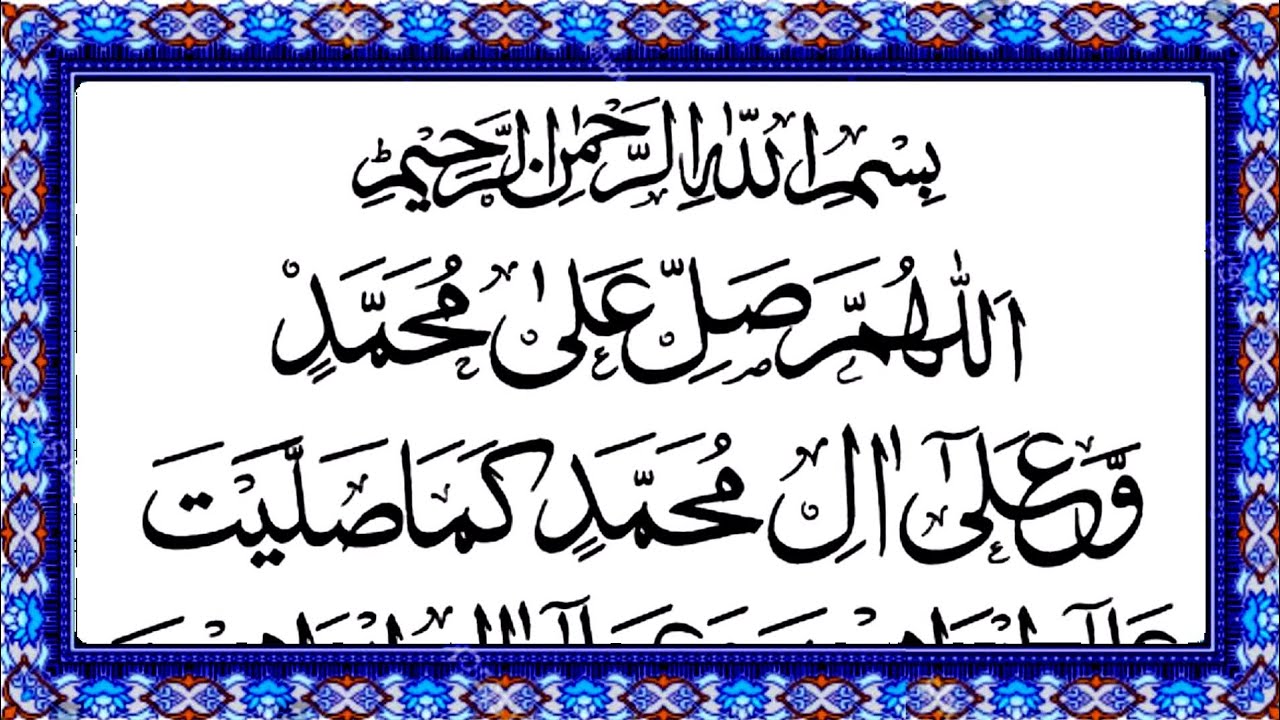 بِسْمِ اللّٰهِ الرَّحْمٰنِ الرَّحِيْمِ
اَللّٰهُمَّ صَلِّ عَلٰى مُحَمَّدٍ
وَّعَلٰٓى اٰلِ مُحَمَّدٍ كَمَا صَلَّيْتَ